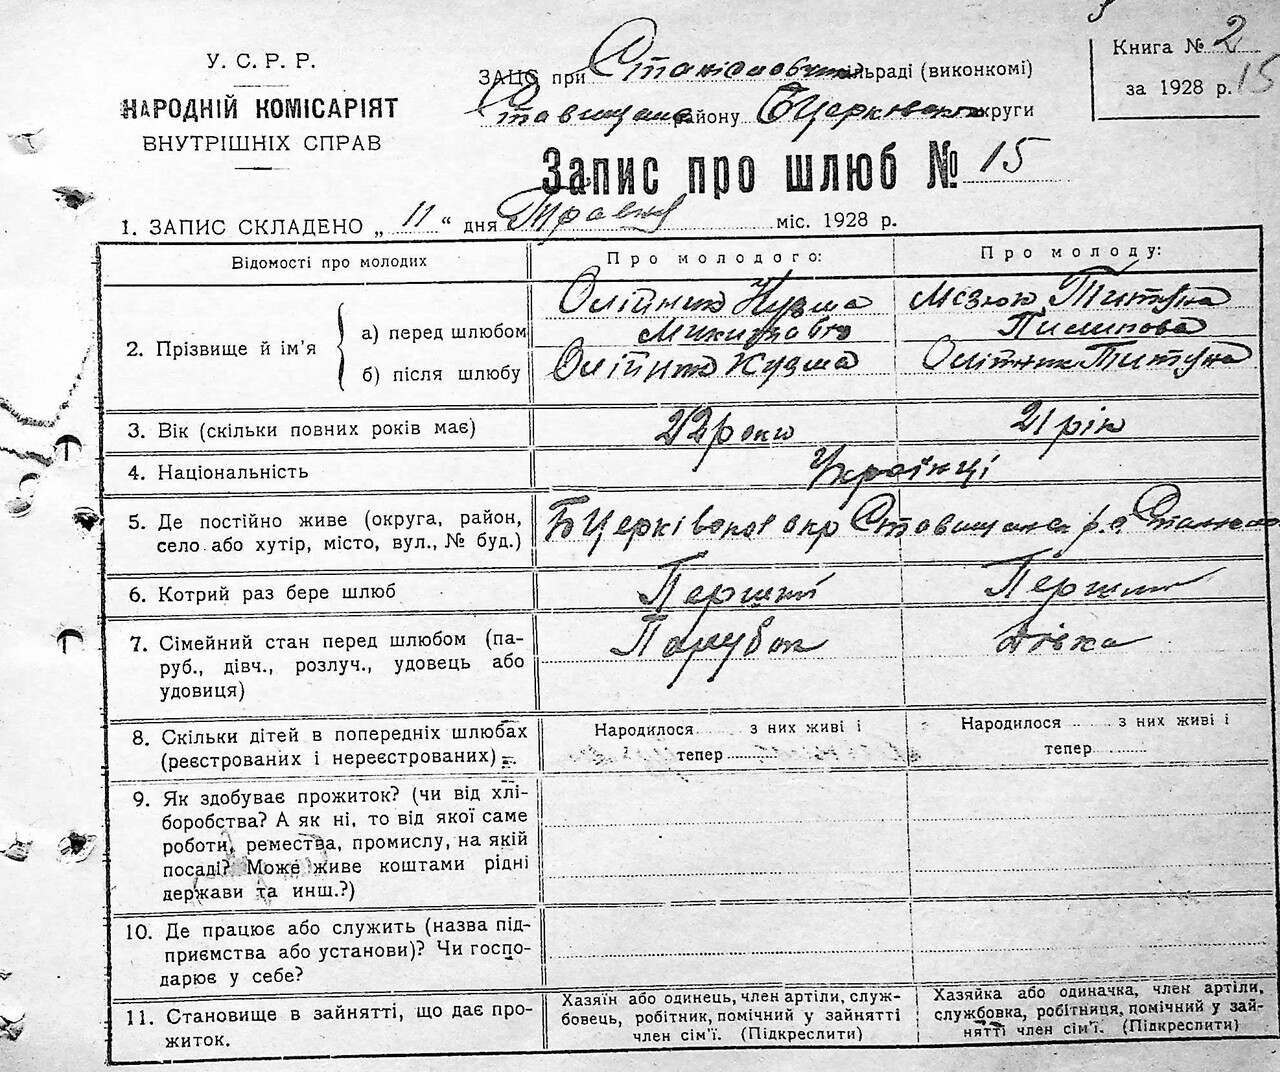 У. С. Р. Р.
НАРОДНІЙ КОМІСАРІЯТ
ВНУТРІШНІХ СПРАВ
ЗАЦС при сільраді (виконкомі)
району БЦерківської округи
Книга № 2
за 1928 р. 15
Запис про шлюб № 15
1. ЗАПИС СКЛАДЕНО „ 11 “ дня Травня міс. 1928 р.
Відомості про молодих
Про молодого:
Про молоду:
2. Прізвище й ім'я
а) перед шлюбом
Олійник Кузма
Мізюк Титяна
Пилипова
б) після шлюбу
Олійник Кузма
Олійник Титяна
3. Вік (скільки повних років має)
22 роки
21 рік
4. Національність
Українці
5. Де постійно живе (округа, район,
село або хутір, місто, вул., № буд.)
БЦерківської окр Ставищанс р. с
6. Котрий раз бере шлюб
Перший
Перший
7. Сімейний стан перед шлюбом (па-
руб., дівч., розлуч., удовець або
удовиця)
Парубок
дівка
8. Скільки дітей в попередніх шлюбах
(реєстрованих і нереєстрованих)
Народилося ..... з них живі і
тепер ..........
Народилося ..... з них живі і
тепер ..........
9. Як здобуває прожиток? (чи від хлі-
боробства? А як ні, то від якої саме
роботи, ремества, промислу, на якій
посаді? Може живе коштами рідні
держави та инш.?)
10. Де працює або служить (назва під-
приємства або установи)? Чи госпо-
дарює у себе?
11. Становище в зайнятті, що дає про-
житок.
Хазяїн або одинець, член артіли, служ-
бовець, робітник, помічний у зайнятті
член сім'ї. (Підкреслити)
Хазяйка або одиначка, член артіли,
службовка, робітниця, помічний у зай-
нятті член сім'ї. (Підкреслити)